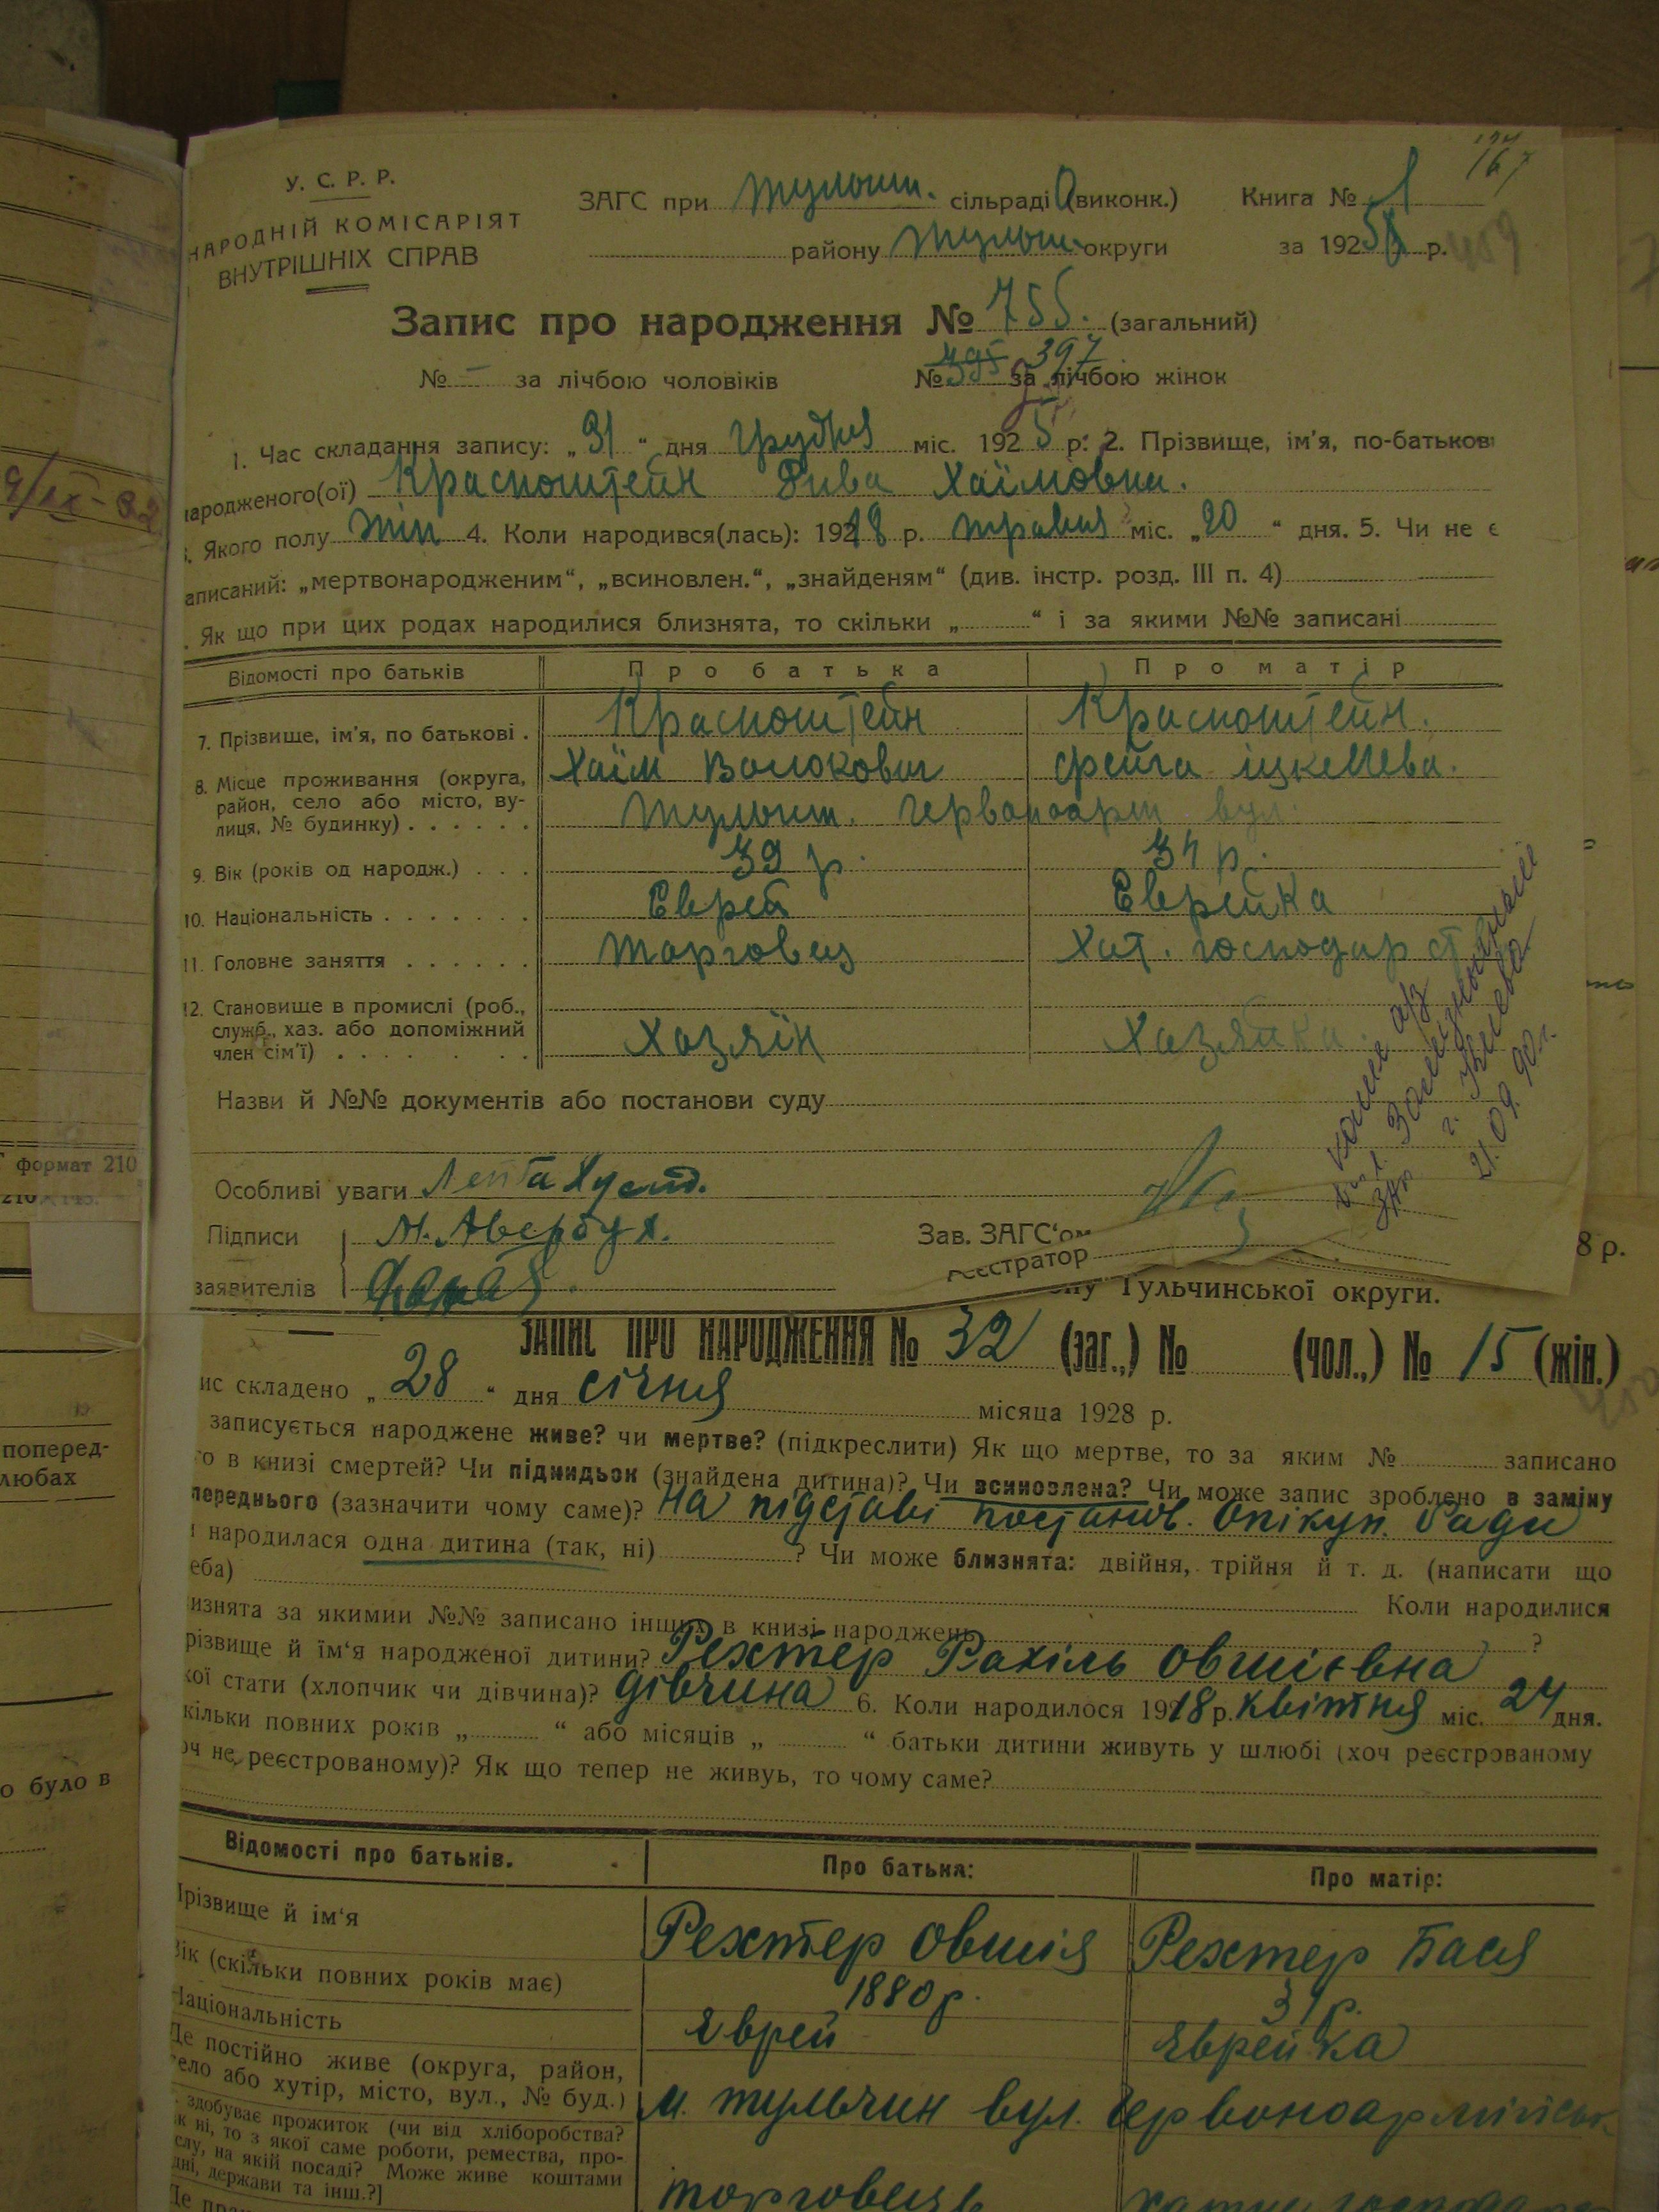 167
У. С. Р. Р.
НАРОДНІЙ КОМІСАРІЯТ
ВНУТРІШНІХ СПРАВ
ЗАГС при Тульчин. сільраді (виконк.) Книга № 1
району Тульчин. округи за 1925 р.
459
Запис про народження № 755. (загальний)
№ – за лічбою чоловіків № 395 397 за лічбою жінок
1. Час складання запису: „31“ дня Грудня міс. 1925 р. 2. Прізвище, ім'я, по-батькові
народженого(ої) Красноштейн Рива Хаїмовна.
. Якого полу жін 4. Коли народився(лась): 1918 р. травня міс. „20“ дня. 5. Чи не є
аписаний: „мертвонародженим“, „всиновлен.“, „знайденям“ (див. інстр. розд. III п. 4)
. Як що при цих родах народилися близнята, то скільки „ “ і за якими №№ записані
Відомості про батьків Про батька Про матір
7. Прізвище, ім'я, по батькові . Красноштейн Красноштейн.
Хаїм Волькович Фейга Іцкелева.
8. Місце проживання (округа, район, село або місто, вулиця, № будинку) . . . . . . Тульчин. Червоноарм вул.
9. Вік (років од народж.) . . . 39 р. 34 р.
10. Національність . . . . . . . Еврей Еврейка
11. Головне заняття . . . . . . Торговец Хат. господарст
12. Становище в промислі (роб., служб., хаз. або допоміжний член сім'ї) . . . . . . . Хазяїн Хазяйка.
Назви й №№ документів або постанови суду
Особливі уваги
Підписи М. Авербух.
заявителів
Зав. ЗАГС'ом
еєстратор
21.09.90 г.
8 р.
ну Тульчинської округи.
ЗАПИС ПРО НАРОДЖЕННЯ № 32 (заг.,) № (чол.,) № 15 (жін.)
ис складено „28“ дня січня місяца 1928 р.
записується народжене живе? чи мертве? (підкреслити) Як що мертве, то за яким № записано
го в книзі смертей? Чи підкидьок (знайдена дитина)? Чи всиновлена? Чи може запис зроблено в заміну
переднього (зазначити чому саме)? На підставі постанов. Опікун. Ради
народилася одна дитина (так, ні) ? Чи може близнята: двійня, трійня й т. д. (написати що
еба) Коли народилися
изнята за якимии №№ записано інших в книзі народжень ?
різвище й їм'я народженої дитини? Рехтер Рахіль Овшієвна
кої стати (хлопчик чи дівчина)? дівчина 6. Коли народилося 1918 р. квітня міс. 24 дня.
кільки повних років „ “ або місяців „ “ батьки дитини живуть у шлюбі (хоч реєстрованому
оч не реєстрованому)? Як що тепер не живуь, то чому саме?
Відомості про батьків. Про батька: Про матір:
Прізвище й ім'я Рехтер Овшія Рехтер Бася
Вік (скільки повних років має) 1880 р. 31 р.
Національність Єврей Єврейка
Де постійно живе (округа, район, село або хутір, місто, вул., № буд.) м. Тульчин вул. Червоноармійськ.
здобуває прожиток (чи від хліборобства?
к ні, то з якої саме роботи, ремества, про-
слу, на якій посаді? Може живе коштами
дні, держави та інш.?] торговець
формат 210
поперед-
любах
о було в